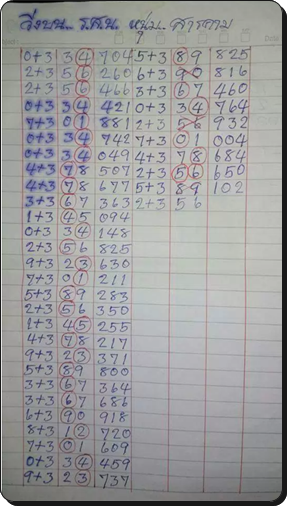 วิ่งบน ร.ส.น. หนุ่ม สารคาม
0+3 34 704 5+3 89 825
2+3 56 260 6+3 90 816
2+3 56 466 3+3 67 460
0+3 34 421 0+3 34 764
7+3 01 881 2+3 56 932
0+3 34 742 7+3 01 004
0+3 34 049 4+3 78 684
4+3 78 507 2+3 56 650
4+3 78 677 5+3 89 102
3+3 67 363 2+3 56
1+3 45 094
0+3 34 148
2+3 56 825
9+3 23 630
7+3 01 211
5+3 89 283
2+3 56 350
1+3 45 255
4+3 78 217
9+3 23 371
5+3 89 800
3+3 67 364
3+3 67 686
6+3 90 918
8+3 12 720
7+3 01 609
0+3 34 459
9+3 23 737